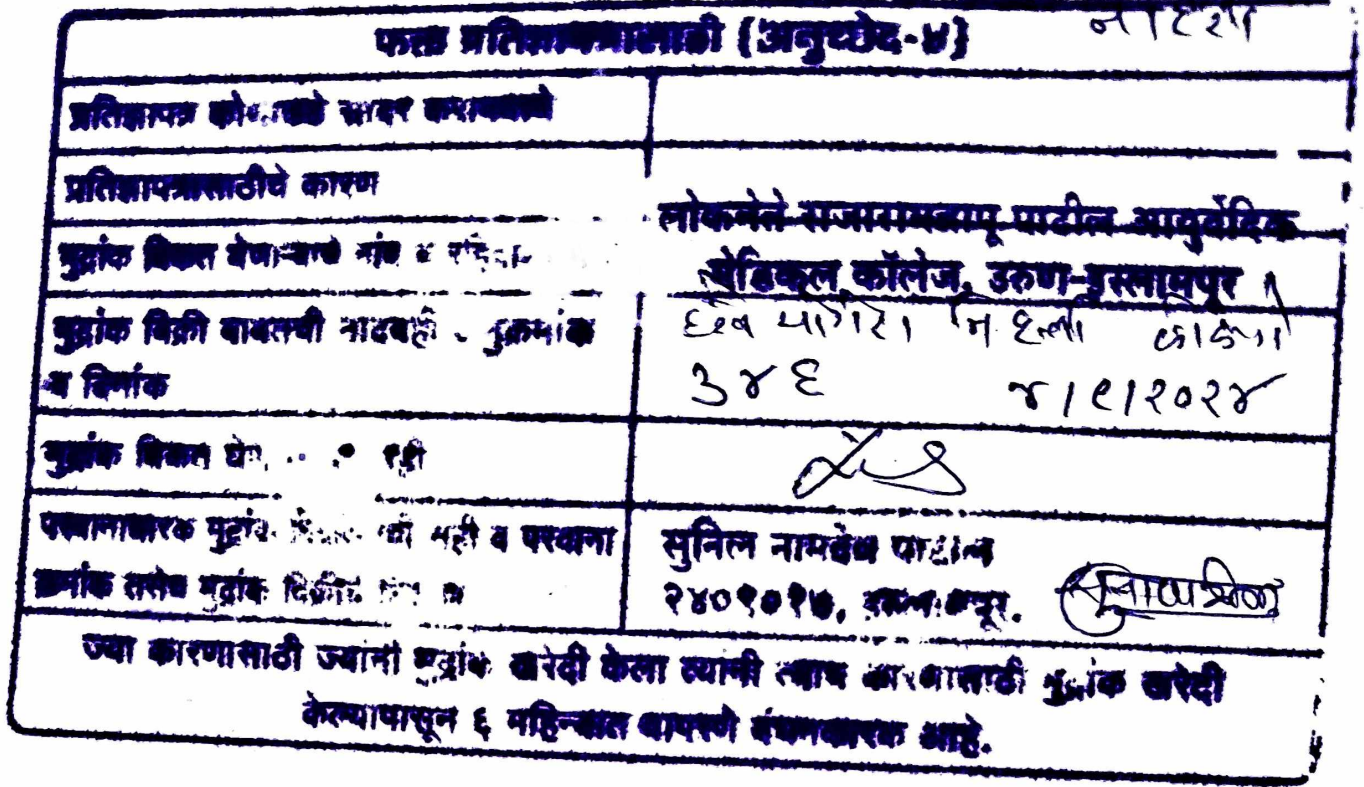 फक्त प्रतिज्ञापत्रासाठी (अनुच्छेद-४)
प्रतिज्ञापत्र कोणाकडे सादर करावयाचे
प्रतिज्ञापत्रासाठीचे कारण
लोकनेते राजारामबापू पाटील आयुर्वेदिक
मुद्रांक विकत घेणाऱ्याचे नांव व
मेडिकल कॉलेज, उरुण-इस्लामपूर
मुद्रांक विक्री बाबतची नोंदवही अनुक्रमांक
व दिनांक
३४६ ४/९/२०२४
मुद्रांक विकत
परवानाधारक मुद्रांक सही व परवाना
सुनिल नामदेव पाटील
क्रमांक तसेच मुद्रांक विक्रीचे
२४०९०१७,
ज्या कारणासाठी ज्यांनी मुद्रांक खरेदी केला त्यांनी त्याच कारणासाठी मुद्रांक खरेदी
केल्यापासून ६ महिन्यात वापरणे बंधनकारक आहे.